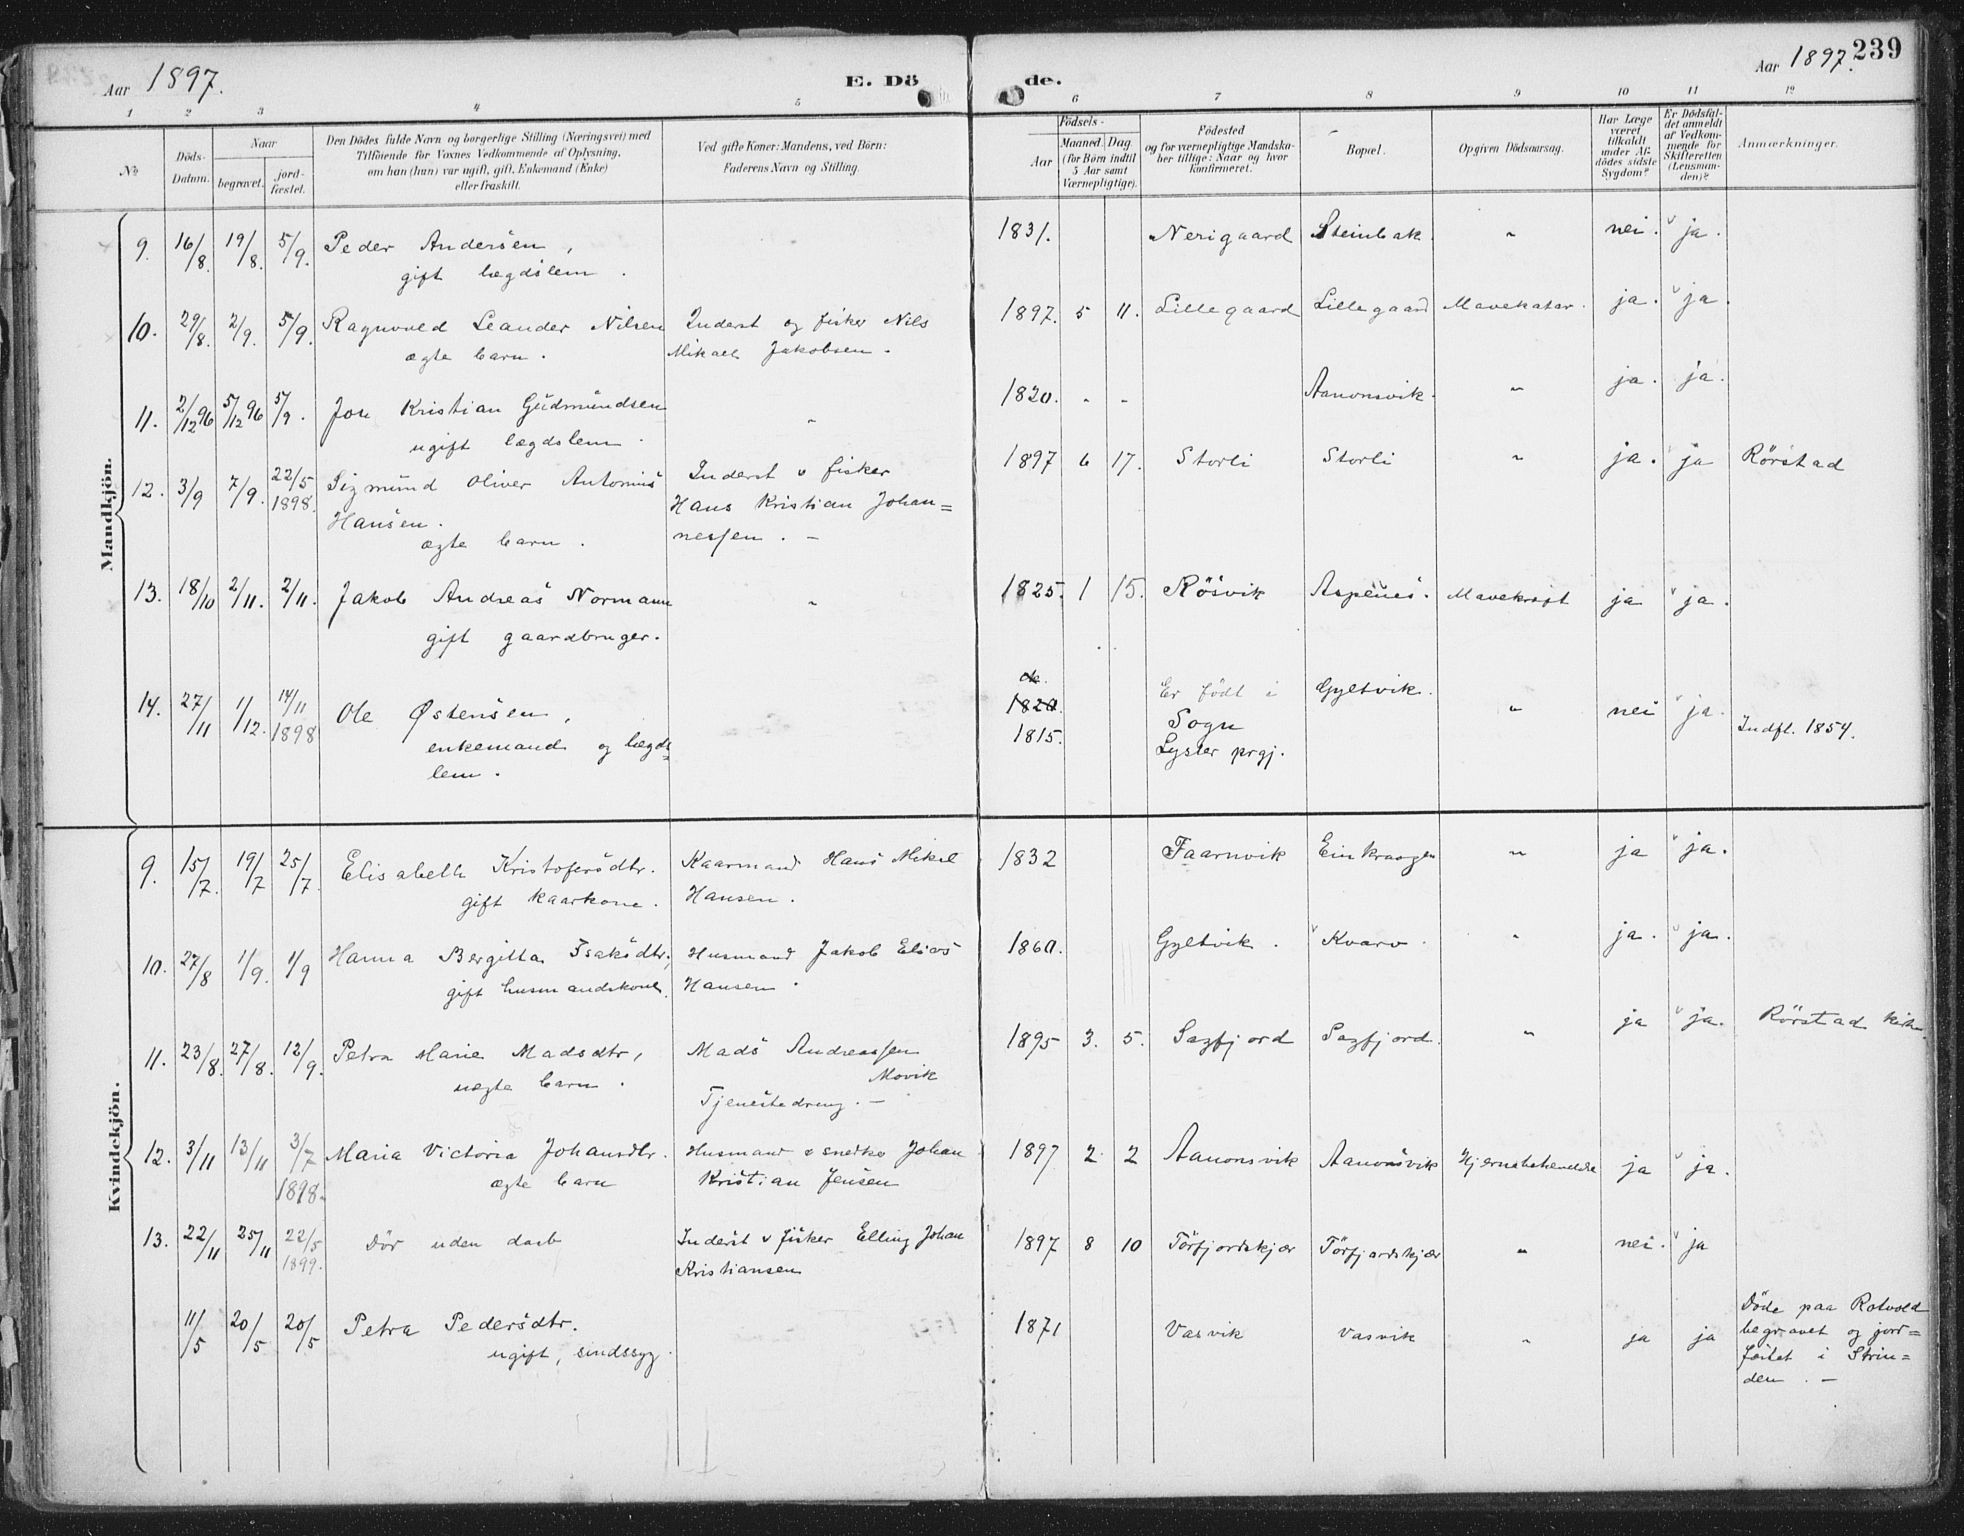 Aar 1897.
E. Dö de.
Aar 1897. 239
1 2 3 4 5 6 7 8 9 10 11 12
No
Döds-Datum.
Naar
begravet.
jord-fæstet.
Den Dödes fulde Navn og borgerlige Stilling (Næringsvei) med
Tilföiende for Voxnes Vedkommende af Oplysning,
om han (hun) var ugift, gift, Enkemand (Enke)
eller fraskilt.
Ved gifte Koner: Mandens, ved Börn:
Faderens Navn og Stilling.
Födsels-
Aar
Maaned. Dag.
(for Börn indtil
5 Aar samt
Værnepligtige).
Födested
og for værnepligtige Mandska-
ber tillige: Naar og hvor
konfirmeret.
Bopæl.
Opgiven Dödsaarsag.
Har Læge
været
tilkaldt
under Af-
dödes sidste
Sygdom?
Er Dödsfal-
det anmeldt
af Vedkom-
mende for
Skifteretten
(Lensman-
den)?
Anmærkninger.
Mandkjön.
9. 16/8. 19/8. 5/9. Peder Andersen, 1831. Nerigaard Steinbak. " nei. ja.
gift lægdslem.
10. 29/8. 2/9. 5/9. Ragnvald Leander Nilsen Inderst og fisker Nils 1897. 5 11. Lillegaard Lillegaard Mavekatar. ja. ja.
ægte barn. Mikael Jakobsen.
11. 2/12 96 5/12 96 5/9. Jon Kristian Gudmundsen " 1820. - - Aanonsvik. " ja. ja.
ugift lægdslem.
12. 3/9 7/9. 22/5 1898. Sigmund Oliver Antonius Inderst & fisker 1897 6 17. Storli Storli " ja. ja Rörstad
Hansen. Hans Kristian Johan=
ægte barn. nessen. -
13. 18/10 2/11. 2/11. Jakob Andreas Normann " 1825. 1 15. Rösvik Aspenes. Mavekræft ja ja.
gift gaardbruger.
14. 27/11 1/12. 14/11 1898 Ole Østensen, 1820. Er födt i Gyltvik. " nei ja.
enkemand og lægds= 1815. Sogn Indfl. 1854.
lem. Lyster prgj.
Kvindekjön.
9. 15/7. 19/7 25/7. Elisabeth Kristofersdtr. Kaarmand Hans Mikal 1832 Faarnvik Einkraagen " ja ja.
gift kaarkone. Hansen.
10. 27/8 1/9. 1/9 Hanna Bergitta Isaksdtr, Husmand Jakob Elias 1860. Gyltvik. Kvarv. " ja. ja.
gift husmandskone. Hansen.
11. 23/8. 27/8. 12/9. Petra Marie Madsdtr, Mads Andreassen 1895 3. 5. Sagfjord Sagfjord. " ja ja. Rörstad kirke
uægte barn. Movik
Tjenestedreng. -
12. 3/11 13/11 3/7 1898. Maria Victoria Johansdtr. Husmand & snedker Johan 1897 2. 2 Aanonsvik Aanonsvik Hjernebetændelse ja ja.
ægte barn Kristian Jensen
13. 22/11 25/11 22/5 1899. Dör uden daab Inderst & fisker Elling Johan 1897 8 10 Törfjordskjær Törfjordskjær " nei. ja
Kristiansen
11/5 20/5 20/5 Petra Pedersdtr. 1871 Vasvik Vasvik " ja ja Döde paa Rotvold
ugift, sindssyg. begravet og jord=
fæstet i Strin=
den. -